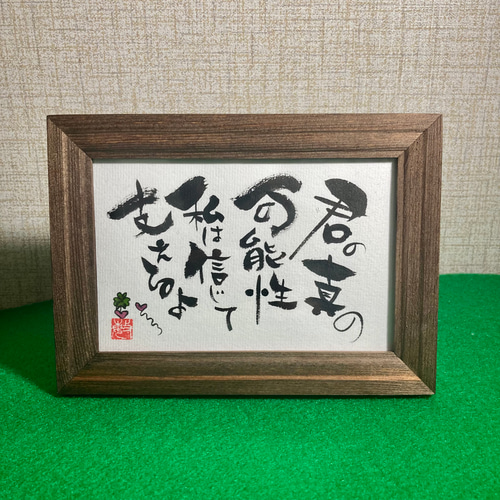 君の真の
可能性
私は信じて
支えるよ